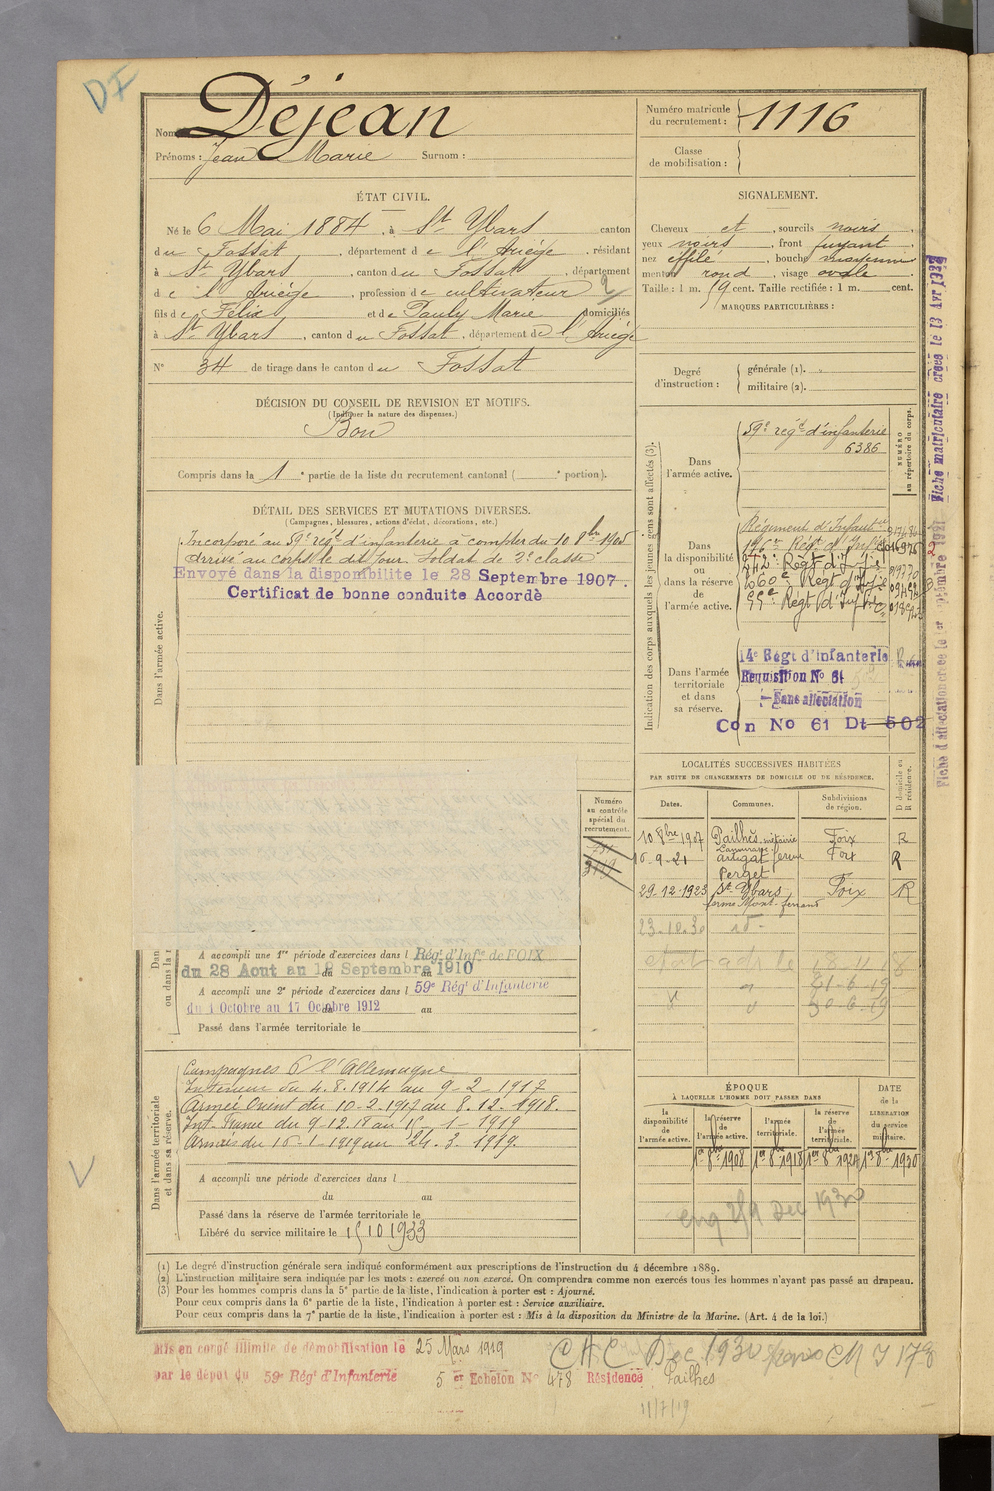 DF
Nom Déjean
Prénoms : Jean Marie Surnom :
Numéro matricule du recrutement : 1116
Classe de mobilisation :
ÉTAT CIVIL.
Né le 6 Mai 1884, à St Ybars canton
du Fossat, département de l'Ariège, résidant
à St Ybars, canton du Fossat, département
de l'Ariège, profession de cultivateur 2
fils de Félix et de Pauly Marie domiciliés
à St Ybars, canton du Fossat, département de l'Ariège
N° 34 de tirage dans le canton du Fossat
SIGNALEMENT.
Cheveux et, sourcils noirs,
yeux noirs, front fuyant,
nez effilé, bouche moyenne
menton rond, visage ovale
Taille : 1 m. 59 cent. Taille rectifiée : 1 m. cent.
MARQUES PARTICULIÈRES :
Degré d'instruction : générale (1).
militaire (2).
DÉCISION DU CONSEIL DE REVISION ET MOTIFS.
(Indiquer la nature des dispenses.)
Bon
Compris dans la 1e partie de la liste du recrutement cantonal ( e portion).
DÉTAIL DES SERVICES ET MUTATIONS DIVERSES.
(Campagnes, blessures, actions d'éclat, décorations, etc.)
Dans l'armée active.
Incorporé au 59e régt d'infanterie à compter du 10 8bre 1905
Arrivé au corps le dit jour. Soldat de 2e classe
Envoyé dans la disponibilite le 28 Septembre 1907.
Certificat de bonne conduite Accordé
Indication des corps auxquels les jeunes gens sont affectés (3).
NUMÉRO au répertoire du corps.
Dans l'armée active.
59e régt d'infanterie
6386
Dans la disponibilité ou dans la réserve de l'armée active.
Régiment d'Infanterie
196e Régt d'Infie
342e Régt d'Infie
260e Régt d'Infie
55e Régt d'Infie
Dans l'armée territoriale et dans sa réserve.
14e Régt d'infanterie
Requisition No 61
Sans affectation
Con No 61 Dt 502
Fiche matriculaire créée le 13 Avr 1937
Fiche d'affectation créée le 1er Septembre 1927
LOCALITÉS SUCCESSIVES HABITÉES
PAR SUITE DE CHANGEMENTS DE DOMICILE OU DE RÉSIDENCE.
Dates. Communes. Subdivisions de région. D domicile ou R résidence.
10 8bre 1907 Pailhès Foix R
16-9-21 Artigat ferme Foix R
Perget
29-12-1923 St Ybars Foix R
ferme Mont-ferrand
23-10-30 id-
Numéro au contrôle spécial du recrutement.
A accompli une 1re période d'exercices dans l Régt d'Infie de FOIX
du 28 Aout au 18 Septembre 1910
A accompli une 2e période d'exercices dans l 59e Régt d'Infanterie
du 1 Octobre au 17 Octobre 1912 au
Passé dans l'armée territoriale le
Dans l'armée territoriale et dans sa réserve.
Campagnes C/ l'Allemagne
Intérieur du 4.8.1914 au 9-2-1917
Armée Orient du 10-2-1917 au 8.12.1918.
Int. France du 9-12.18 au 15-1-1919
Armées du 16-1-1919 au 24.3.1919.
A accompli une période d'exercices dans l
du au
Passé dans la réserve de l'armée territoriale le
Libéré du service militaire le 15 10 1933
ÉPOQUE
À LAQUELLE L'HOMME DOIT PASSER DANS
la disponibilité de l'armée active.
la réserve de l'armée active.
l'armée territoriale.
la réserve de l'armée territoriale.
DATE de la LIBÉRATION du service militaire.
1er 8bre 1908 1er 8bre 1918 1er 8bre 1924 1er 8bre 1930
(1) Le degré d'instruction générale sera indiqué conformément aux prescriptions de l'instruction du 4 décembre 1889.
(2) L'instruction militaire sera indiquée par les mots : exercé ou non exercé. On comprendra comme non exercés tous les hommes n'ayant pas passé au drapeau.
(3) Pour les hommes compris dans la 5e partie de la liste, l'indication à porter est : Ajourné.
Pour ceux compris dans la 6e partie de la liste, l'indication à porter est : Service auxiliaire.
Pour ceux compris dans la 7e partie de la liste, l'indication à porter est : Mis à la disposition du Ministre de la Marine. (Art. 4 de la loi.)
Mis en congé illimité de démobilisation le 25 Mars 1919
par le dépôt du 59e Régt d'Infanterie 5er Echelon No 478 Résidence Pailhès
11/7/19